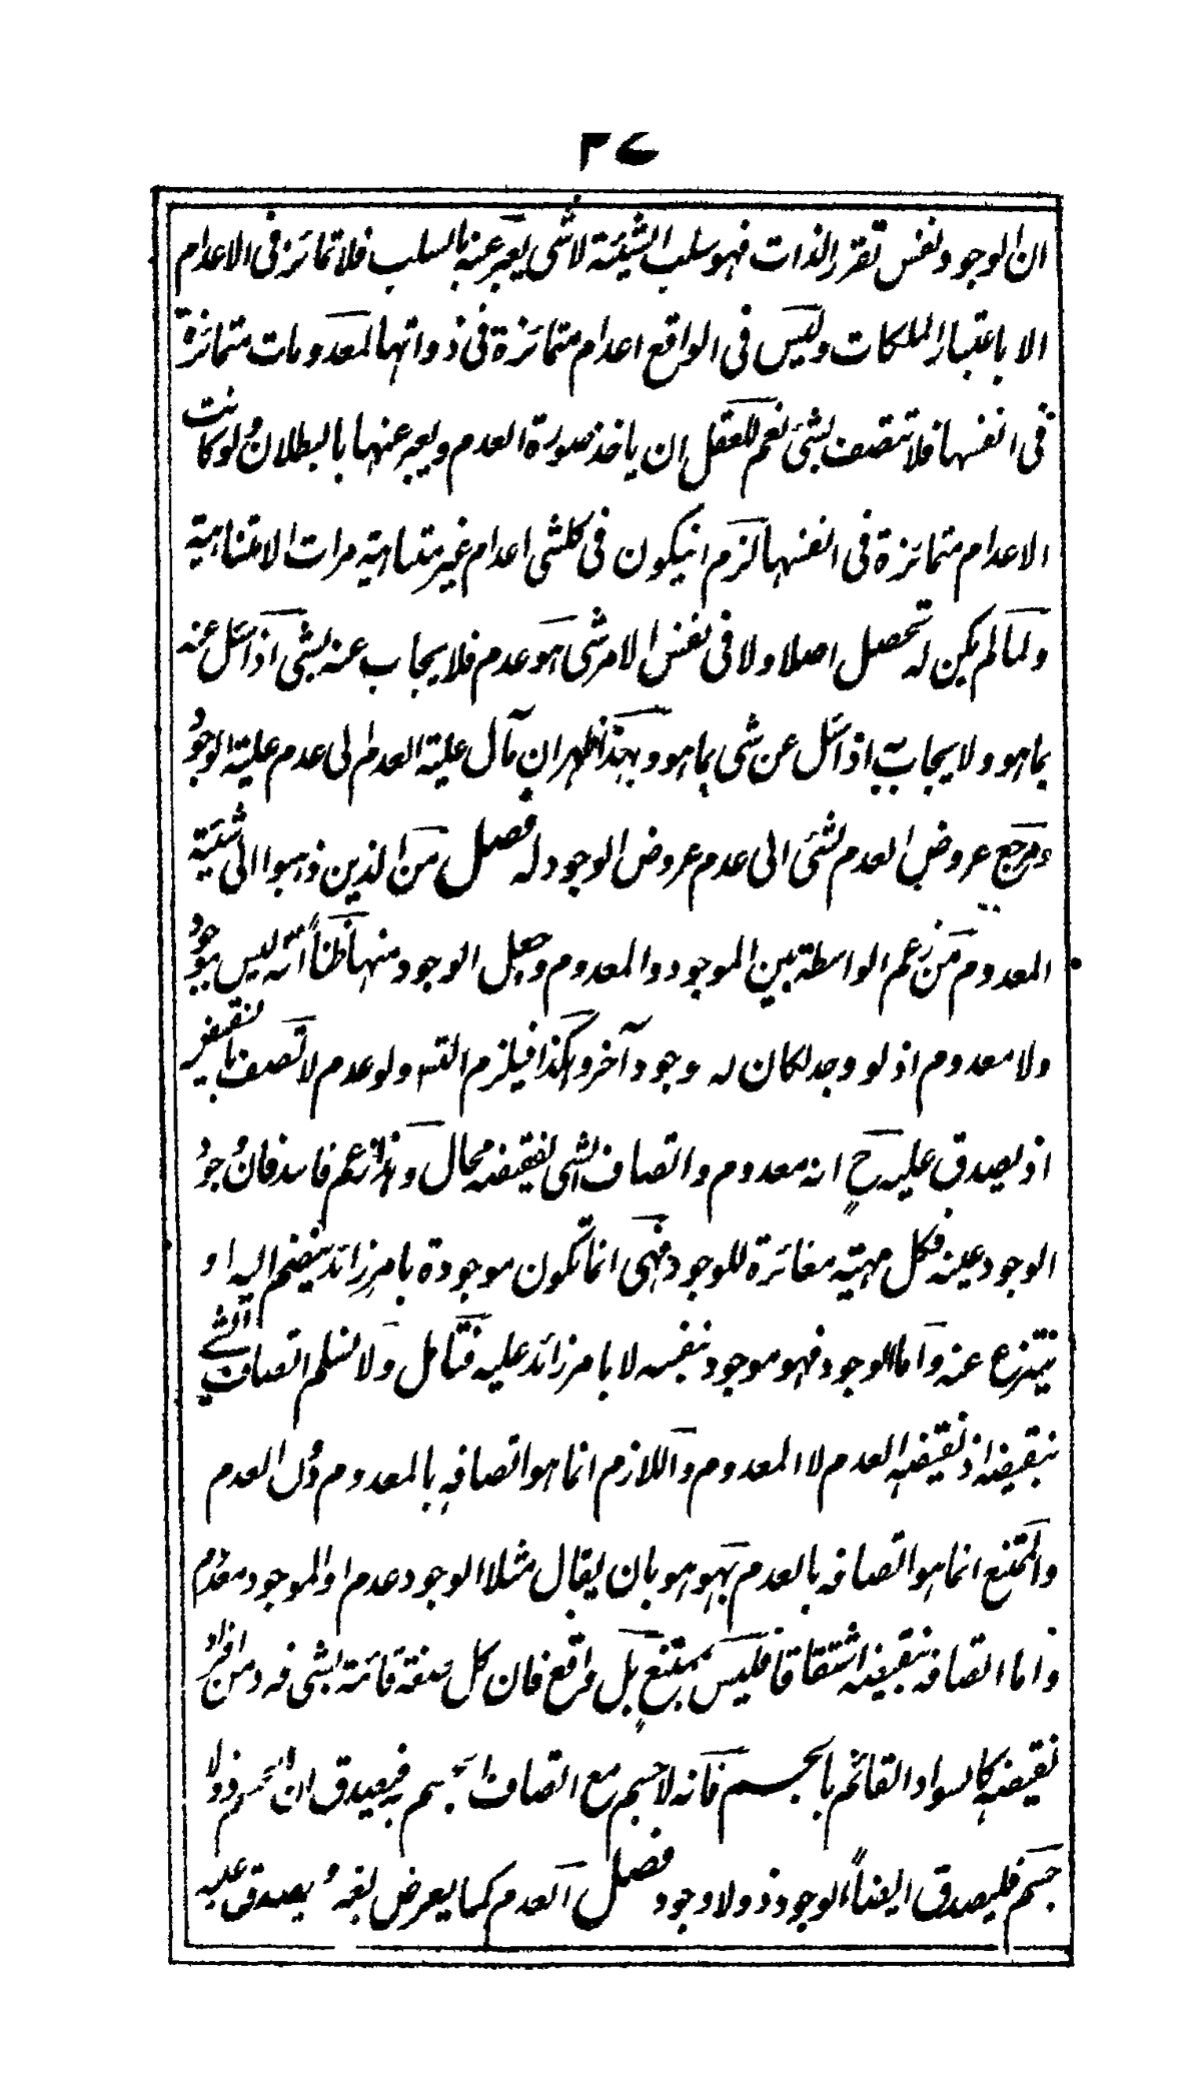 ٣٧
ان الوجود نفس تقرر الذات فهو سلب الشيئية لا شى يعبر عنه بالسلب فلا تمائز فى الاعدام
الا باعتبار الملكات وليس فى الواقع اعدام متمائزة فى ذواتها المعدومات متمائزة
فى انفسها فلا تتصف بشئ نعم للعقل ان ياخذ صورة العدم ويعبر عنها بالبطلان ولو كانت
الاعدام متمائزة فى انفسها لزم انيكون فى كلشى اعدام غير متناهية مرات لا متناهية
ولما لم يكن له تحصل اصلا ولا فى نفس الامر شى هو عدم فلا يجاب عنه بشى اذا سئل عنه
بما هو ولا يجاب به اذا سئل عن شى بما هو وبهذا ظهر ان مآل علية العدم الى عدم علية الوجود
ومرجع عروض العدم لشئ الى عدم عروض الوجود له فصل من الذين ذهبوا الى شيئية
المعدوم من زعم الواسطة بين الموجود والمعدوم وجعل الوجود منها ظناً انه ليس بموجود
ولا معدوم اذ لو وجد لكان له وجود آخر وهكذا فيلزم التسـ ولو عدم لاتصف بنقيضه
اذ يصدق عليه ح انه معدوم واتصاف الشى بنقيضه محال وهذا زعم فاسد فان وجود
الوجود عينه فكل مهية مغائرة للوجود فهى انما تكون موجودة بامر زائد ينضم اليه او
ينتزع عنه واما الوجود فهو موجود بنفسه لا بامر زائد عليه فتامل ولا نسلم اتصاف الشے
بنقيضه اذ نقيضه العدم لا المعدوم واللازم انما هو اتصافه بالمعدوم دون العدم
والممتنع انما هو اتصافه بالعدم بهو هو بان يقال مثلا الوجود عدم او الموجود معدوم
واما اتصافه بنقيضه اشتقاقا فليس بممتنع بل واقع فان كل صفة قائمة بشى فرد من افراد
نقيضه كالسواد القائم بالجسم فانه لا جسم مع اتصاف الجسم به فيصدق ان الجسم ذو لا
جسم فليصدق ايضاً الوجود ذو لا وجود فصل العدم كما يعرض لغيره يصدق عليه